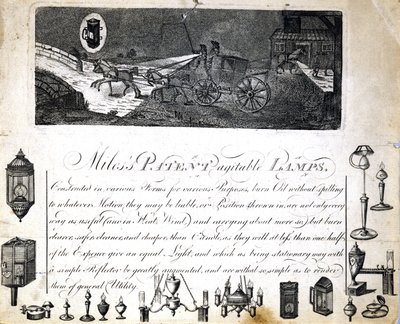 Miles's PATENT agitable LAMPS,
Constructed in various Forms for various Purposes, burn Oil without spilling
to whatever Motion they may be liable, or Position thrown in, are not only every
way as useful (and in Wind) and carrying about more so) but burn
clearer, safer, cleaner, and cheaper than Candle, as they will at less than one half
of the Expence give an equal Light, and which as being stationary may with
a simple Reflector be greatly augmented, and are withal so simple as to render
them of general Utility.